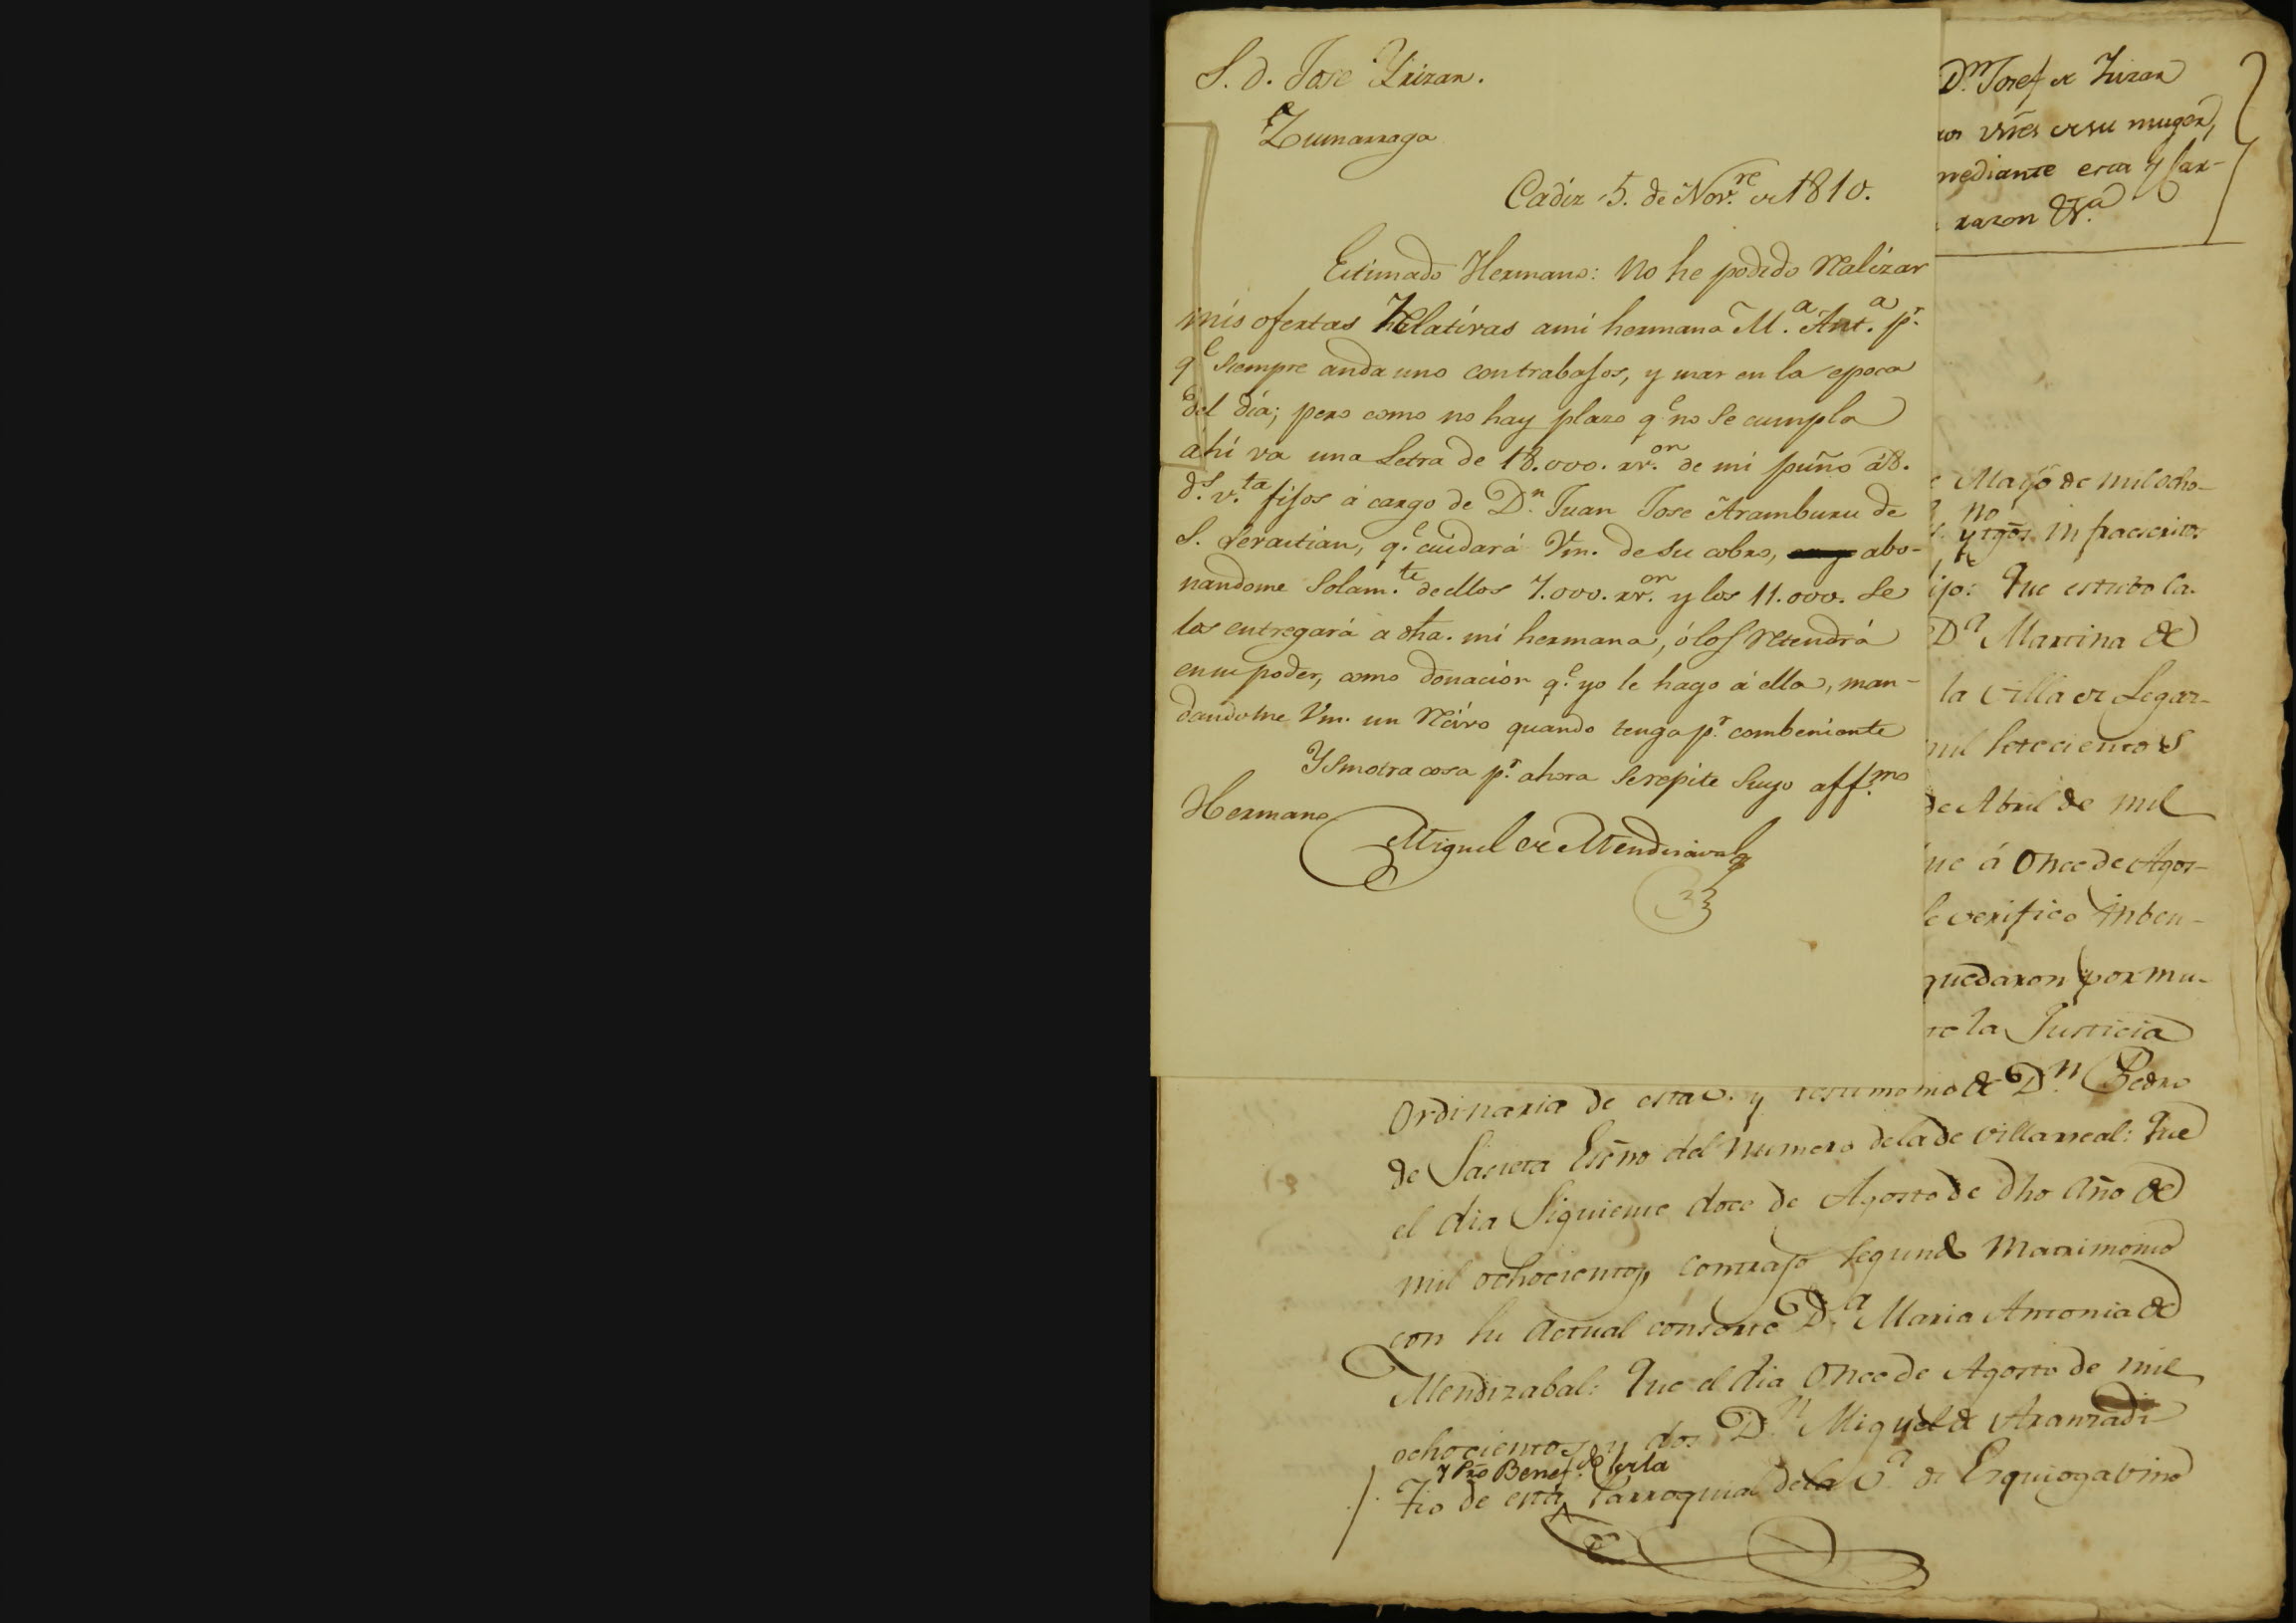 S. D. Jose Yrizar.
Zumarraga
Cadiz 5. de Nov.re de 1810.
Estimado Hermano: No he podido realizar
mis ofertas relativas a mi hermana M.a Ant.a p.r
q.e siempre anda uno con trabajos, y mas en la epoca
del dia; pero como no hay plazo q.e no se cumpla
ahí va una Letra de 18.000. rr.on de mi puño á 8.
d.s v.ta fijos á cargo de D.n Juan Jose Aramburu de
S. Sevastian, q.e cuidará Vm. de su cobro, abo-
nandome Solam.te de ellos 7.000. rr.on y los 11.000. Se
los entregará a dha. mi hermana, ó los retendrá
en su poder, como donacion q.e yo le hago á ella, man-
dandome Vm. un recivo quando tenga p.r combeniente
Y sin otra cosa p.r ahora Se repite Suyo aff.mo
Hermano
Miguel de Mendizaval
D.n Josef de Yrizar
vnes de su muger,
mediante esta y Car-
razon &.a
Mayo de mil ocho-
y tgos. infraescritos
Que estubo ca-
D.a Martina de
la villa de Legaz-
mil setecientos
de Abril de mil
que á once de Agos-
se verifico Inben-
quedaron por mu-
la Justicia
Ordinaria de esta v. y testimonio de D.n Pedro
de Sasieta Esno del numero de la de Villarreal: Que
el dia Siguiente doce de Agosto de dho año de
mil ochocientos, contrajo Segundo Matrimonio
con su actual consorte D.a Maria Antonia de
Mendizabal: Que el dia once de Agosto de mil
ochocientos y dos D.n Miguel de Aranzadi
y Pro Benef.do de la
Tio de esta Parroquial de la V.a de Ezquioga vino